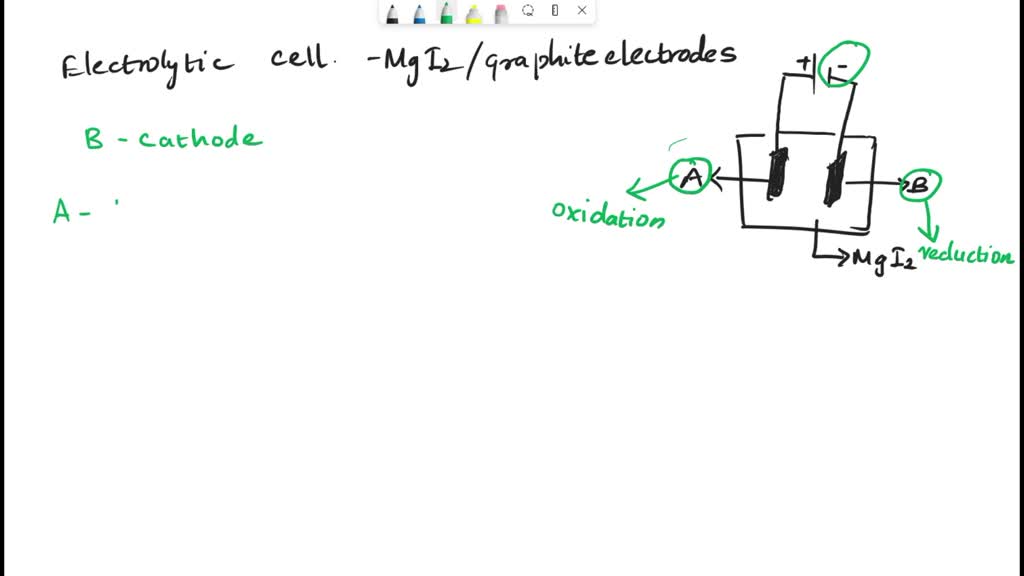 Electrolytic cell. -MgI2/graphite electrodes
+ -
B - cathode
A
B
A -
oxidation
MgI2
reduction